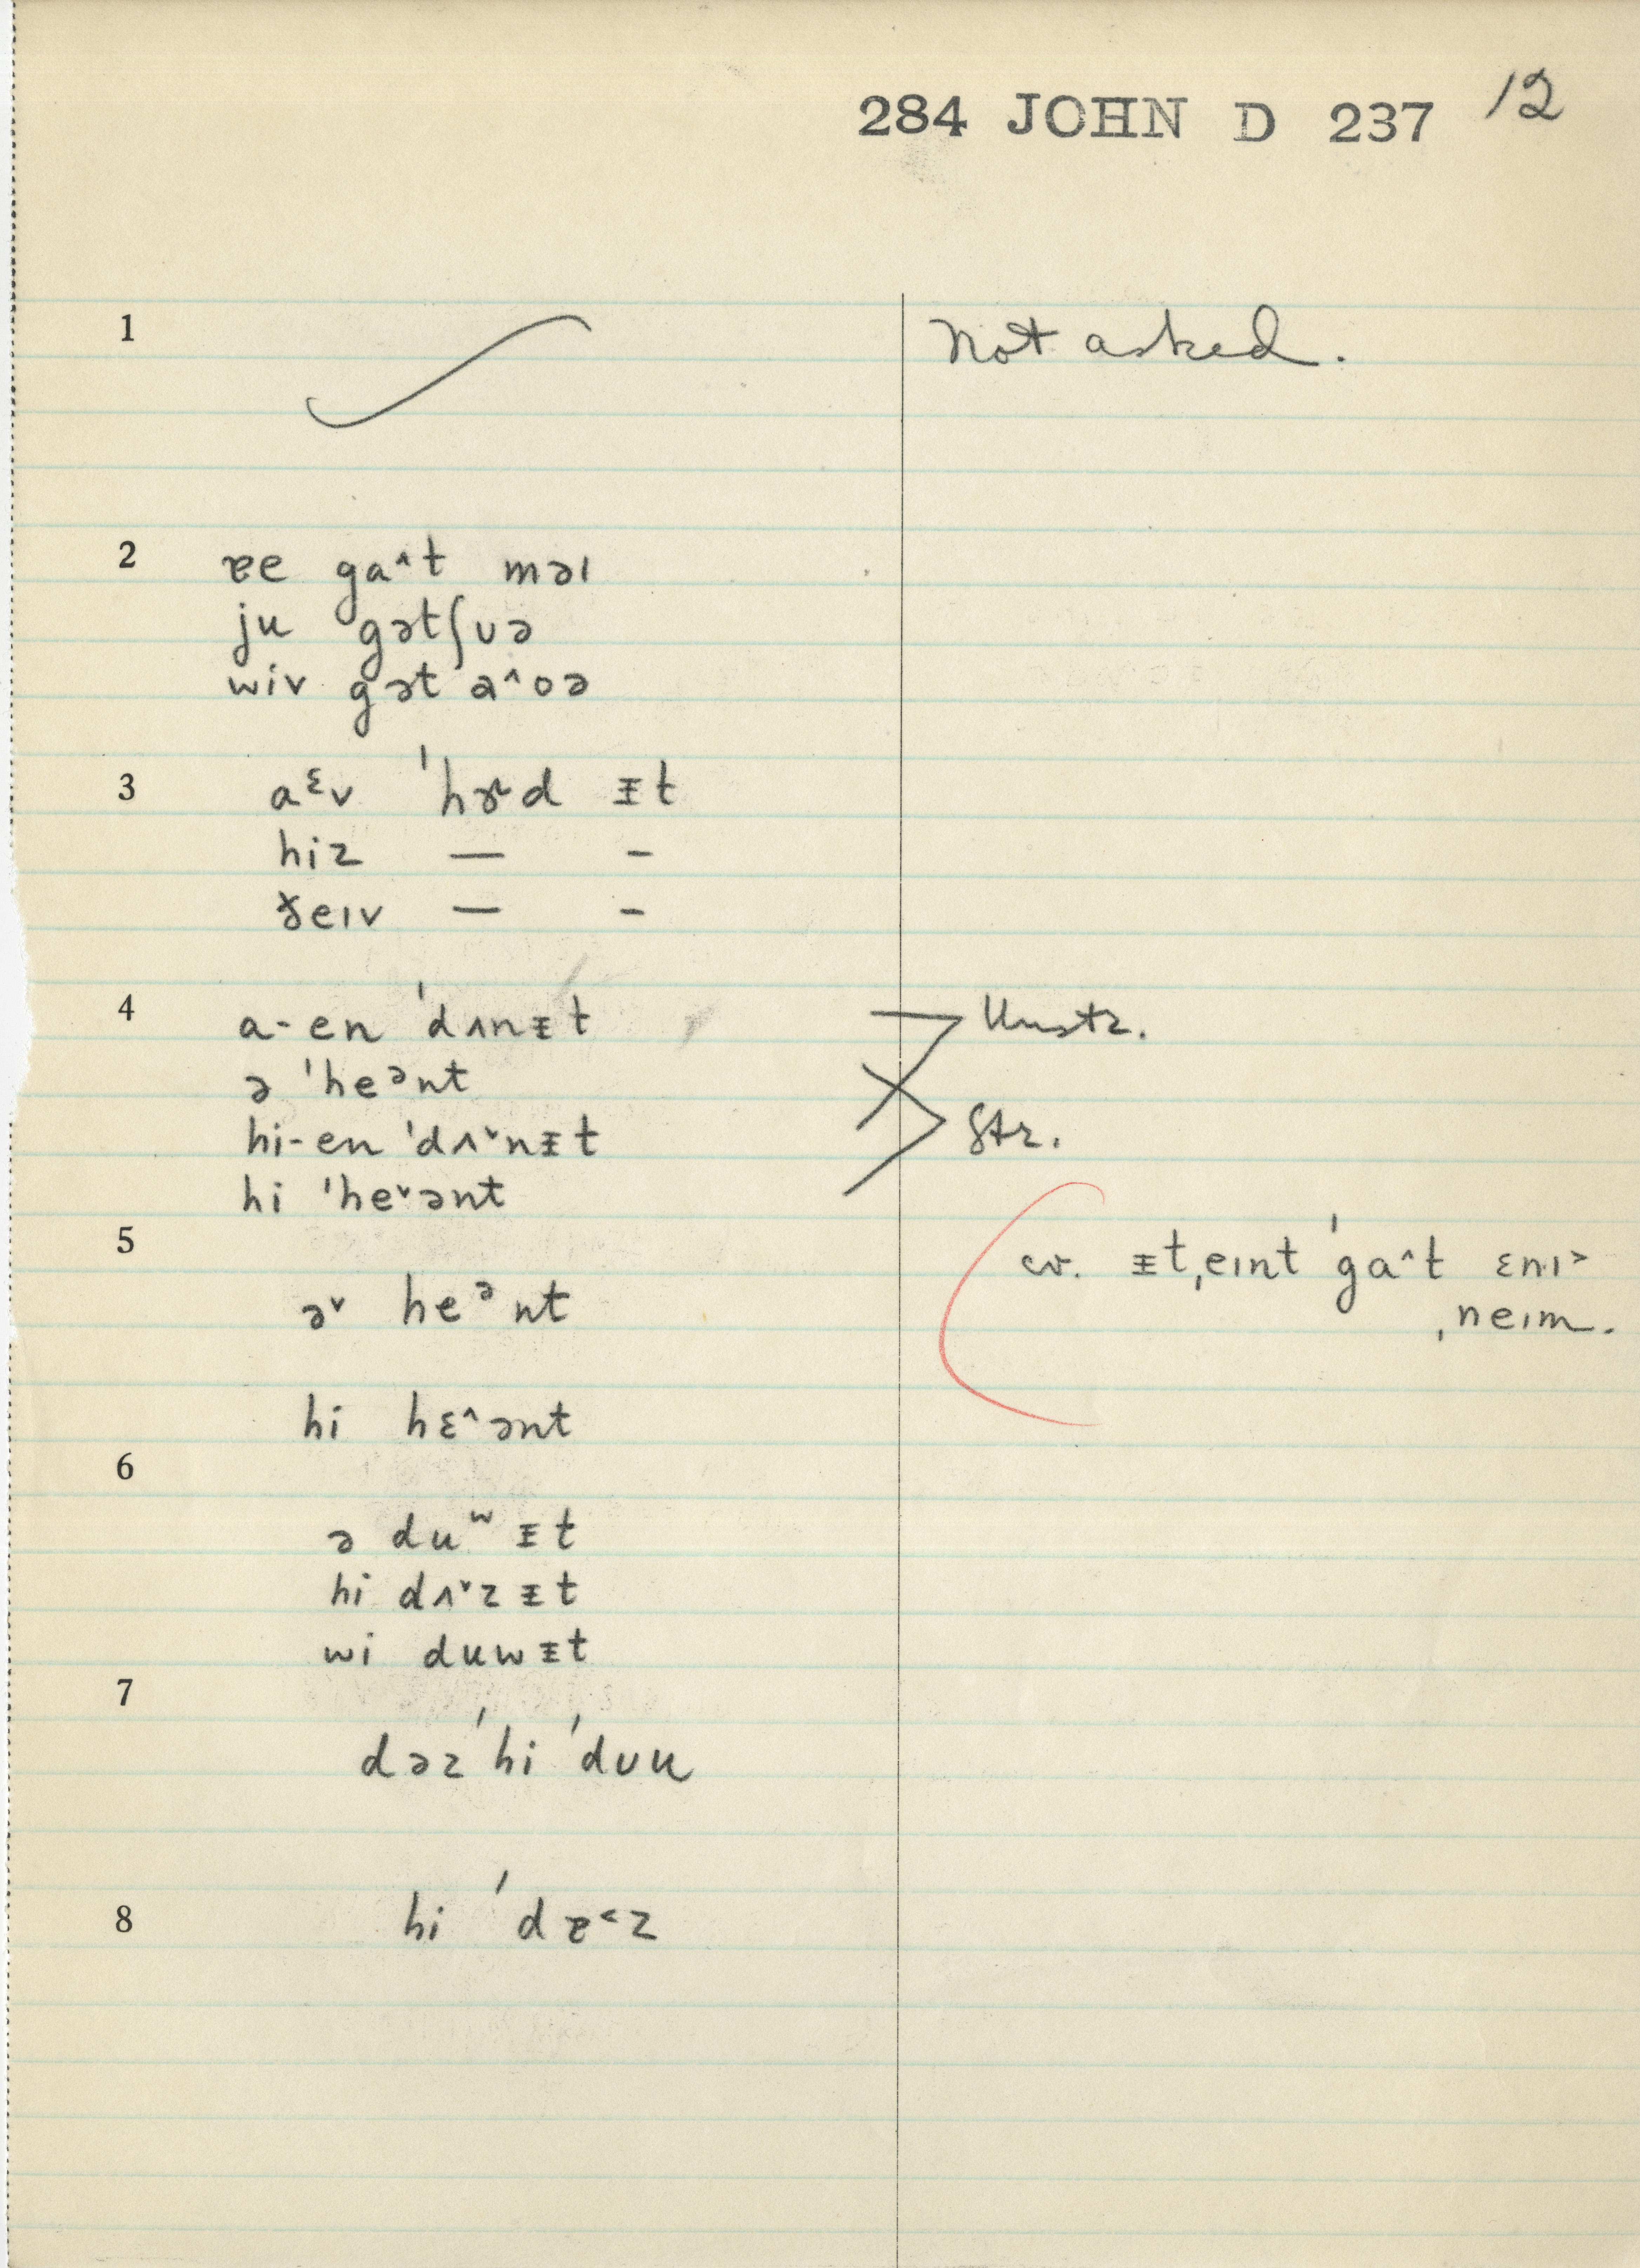 284 JOHN D 237 12
1 Not asked.
2 ɐe ga^t məɪ
ju gətʃʊə
wiv gət a^oə
3 aᵋv ˈhɝd ᵻt
hiz — -
ɤeɪv — -
4 a-en ˈdʌnᵻt Unstr.
ə ˈheᵊnt
hi-en ˈdʌ˅nᵻt Str.
hi ˈhe˅ənt
5 cv. ᵻtˌeɪnt ˈga^t ɛnɪ˃
ˌneɪm.
ə˅ heᵊnt
hi hɛ^ənt
6
ə duʷ ᵻt
hi dʌ˅z ᵻt
wi duwᵻt
7
dəzˈhi ˈdʊu
8 hi ˈdɐ˂z